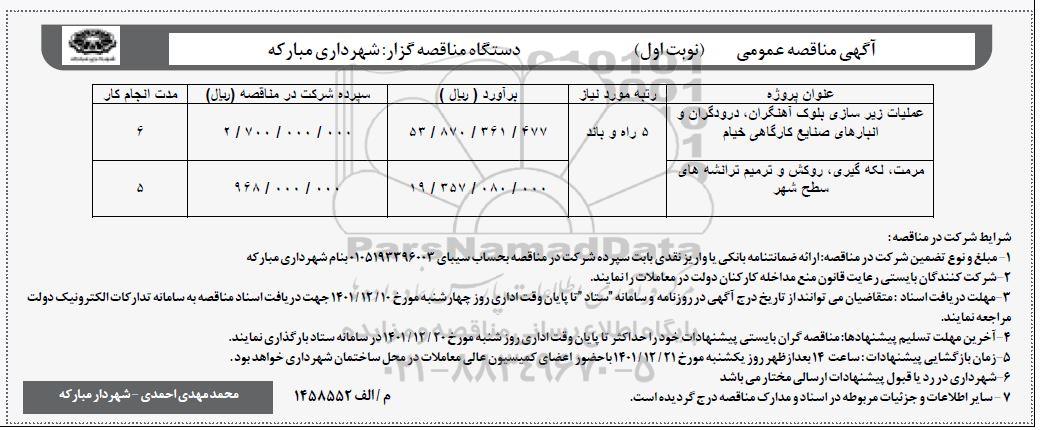 آگهی مناقصه عمومی (نوبت اول) دستگاه مناقصه گزار: شهرداری مبارکه
عنوان پروژه رتبه مورد نیاز برآورد ( ریال ) سپرده شرکت در مناقصه (ریال) مدت انجام کار
عملیات زیر سازی بلوک آهنگران، درودگران و
انبارهای صنایع کارگاهی خیام
۵ راه و باند
۵۳ / ۸۷۰ / ۳۶۱ / ۴۷۷
۲ / ۷۰۰ / ۰۰۰ / ۰۰۰
۶
مرمت، لکه گیری، روکش و ترمیم ترانشه های
سطح شهر
۱۹ / ۳۵۷ / ۰۸۰ / ۰۰۰
۹۶۸ / ۰۰۰ / ۰۰۰
۵
شرایط شرکت در مناقصه :
۱- مبلغ و نوع تضمین شرکت در مناقصه: ارائه ضمانتنامه بانکی یا واریز نقدی بابت سپرده شرکت در مناقصه بحساب سیبای ۰۱۰۵۱۹۳۳۹۶۰۰۳ بنام شهرداری مبارکه
۲- شرکت کنندگان بایستی رعایت قانون منع مداخله کارکنان دولت در معاملات را نمایند.
۳- مهلت دریافت اسناد : متقاضیان می توانند از تاریخ درج آگهی در روزنامه و سامانه "ستاد" تا پایان وقت اداری روز چهارشنبه مورخ ۱۴۰۱/۱۲/۱۰ جهت دریافت اسناد مناقصه به سامانه تدارکات الکترونیک دولت
مراجعه نمایند.
۴- آخرین مهلت تسلیم پیشنهادها: مناقصه گران بایستی پیشنهادات خود را حداکثر تا پایان وقت اداری روز شنبه مورخ ۱۴۰۱/۱۲/۲۰ در سامانه ستاد بارگذاری نمایند.
۵- زمان بازگشایی پیشنهادات : ساعت ۱۴ بعدازظهر روز یکشنبه مورخ ۱۴۰۱/۱۲/۲۱ با حضور اعضای کمیسیون عالی معاملات در محل ساختمان شهرداری خواهد بود.
۶- شهرداری در رد یا قبول پیشنهادات ارسالی مختار می باشد
۷- سایر اطلاعات و جزئیات مربوطه در اسناد و مدارک مناقصه درج گردیده است.
م / الف ۱۴۵۸۵۵۲
محمد مهدی احمدی - شهردار مبارکه
ParsNamadData
پایگاه اطلاع رسانی مناقصه و مزایده
۰۲۱-۸۸۳۴۹۶۷۰-۵